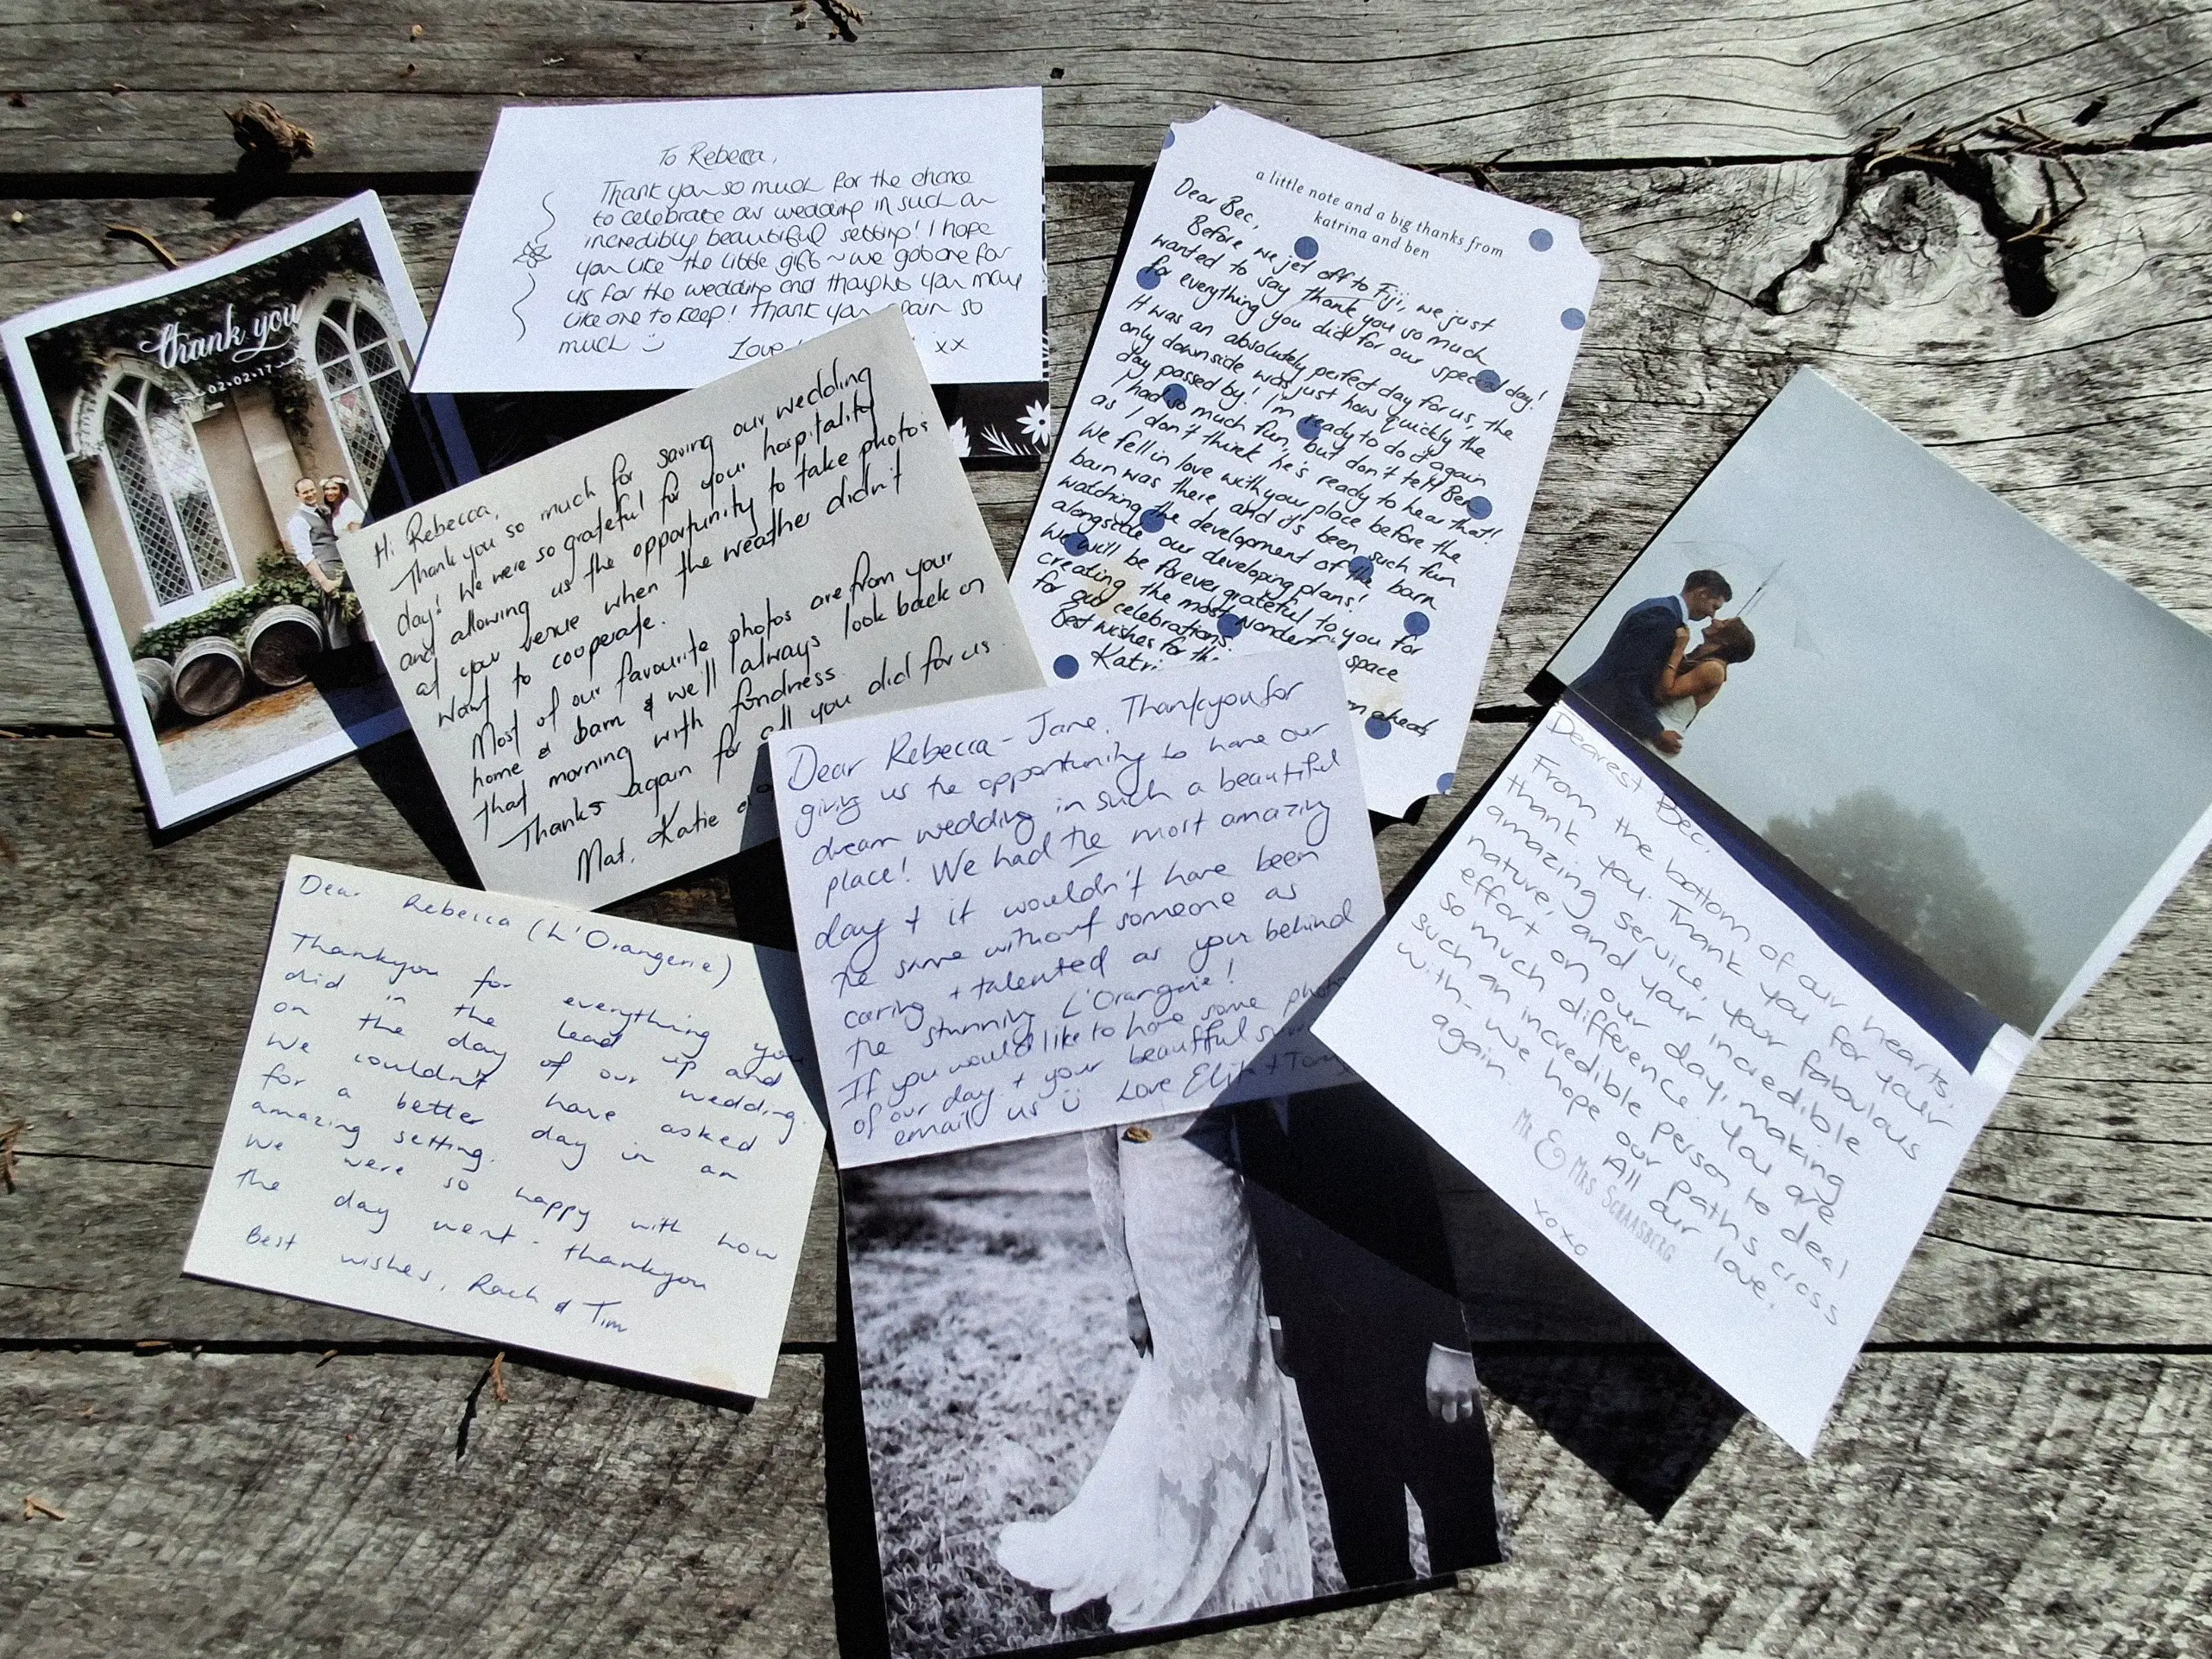 thank you
02•02•17
To Rebecca,
Thank you so much for the chance
to celebrate our wedding in such an
incredibly beautiful setting! I hope
you like the little gift ~ we got one for
us for the wedding and thought you may
like one to keep! Thank you again so
much
Love
xx
a little note and a big thanks from
katrina and ben
Dear Bec,
Before we jet off to Fiji, we just
wanted to say thank you so much
for everything you did for our special day!
It was an absolutely perfect day for us, the
only downside was just how quickly the
day passed by! I'm ready to do it again
I had so much fun, but don't tell Ben
as I don't think he's ready to hear that!
We fell in love with your place before the
barn was there, and it's been such fun
watching the development of the barn
alongside our developing plans!
We will be forever grateful to you for
creating the most wonderful space
for our celebrations.
Best wishes for th
ahead,
Katri
Hi Rebecca,
Thank you so much for saving our wedding
day! We were so grateful for your hospitality
and allowing us the opportunity to take photos
at your venue when the weather didn't
want to cooperate.
Most of our favourite photos are from your
home & barn & we'll always look back on
that morning with fondness.
Thanks again for all you did for us.
Mat, Katie
Dear Rebecca-Jane, Thankyou for
giving us the opportunity to have our
dream wedding in such a beautiful
place! We had the most amazing
day + it wouldn't have been
the same without someone as
caring + talented as your behind
the stunning L'Orangerie!
If you would like to have some photos
of our day + your beautiful
email us Love + Tom
Dearest Bec,
From the bottom of our hearts,
thank you. Thank you for your
amazing service, your fabulous
nature, and your incredible
effort on our day, making
so much difference. You are
such an incredible person to deal
with - we hope our paths cross
again. All our love,
Mr & Mrs Schaasberg
xoxo
Dear Rebecca (L'Orangerie)
Thankyou for everything you
did in the lead up and
on the day of our wedding.
We couldn't have asked
for a better day in an
amazing setting.
We were so happy with how
the day went - thankyou
Best wishes, Rach & Tim